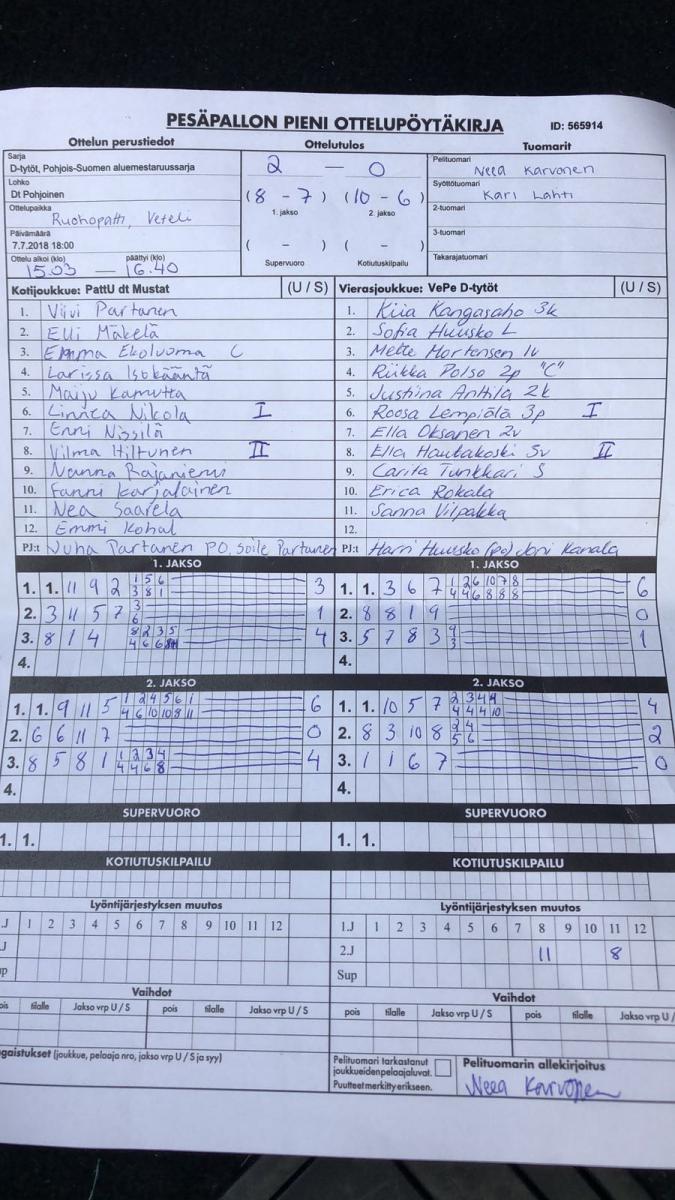 PESÄPALLON PIENI OTTELUPÖYTÄKIRJA ID: 565914
Ottelun perustiedot Ottelutulos Tuomarit
Sarja
D-tytöt, Pohjois-Suomen aluemestaruussarja
Lohko
Dt Pohjoinen
Ottelupaikka
Ruohopatti, Veteli
Päivämäärä
7.7.2018 18:00
Ottelu alkoi (klo) päättyi (klo)
15.03 — 16.40
2 — 0
(8 - 7) (10 - 6)
1. jakso 2. jakso
( - ) ( - )
Supervuoro Kotiutuskilpailu
Pelituomari
Neea Karvonen
Syöttötuomari
Kari Lahti
2-tuomari
3-tuomari
Takarajatuomari
Kotijoukkue: PattU dt Mustat (U / S)
1. Viivi Partanen
2. Elli Mäkelä
3. Emma Ekoluoma C
4. Larissa Isokääntä
5. Maiju Kamutta
6. Linnea Nikola I
7. Enni Nissilä
8. Vilma Hiltunen II
9. Nanna Rajaniemi
10. Fanni Karjalainen
11. Nea Saarela
12. Emmi Kohal
PJ:t Juha Partanen PO, Soile Partanen
Vierasjoukkue: VePe D-tytöt (U / S)
1. Kiia Kangasaho 3k
2. Sofia Huusko L
3. Mette Mortensen 1v
4. Riikka Polso 2p "C"
5. Justiina Anttila 2k
6. Roosa Lempiälä 3p I
7. Ella Oksanen 2v
8. Ella Hautakoski 3v II
9. Carita Tunkkari S
10. Erica Rokala
11. Sanna Vilpakka
12.
PJ:t Harri Huusko (po) Joni Kanala
1. JAKSO
1. 1. 11 9 2 1 5 6 3
3 8 1
2. 3 11 5 7 3 1
6
3. 8 1 4 8 2 3 5 4
4 6 6
4.
1. JAKSO
1. 1. 3 6 7 1 2 6 10 7 8 6
4 4 6 8 8 8
2. 8 8 1 9 0
3. 5 7 8 3 9 1
3
4.
2. JAKSO
1. 1. 9 11 5 1 2 4 5 6 1 6
4 6 10 10 8 11
2. 6 6 11 7 0
3. 8 5 8 1 1 2 3 4 4
4 4 6 8
4.
2. JAKSO
1. 1. 10 5 7 2 3 4 4 4
4 4 4 10
2. 8 3 10 8 2 4 2
5 6
3. 1 1 6 7 0
4.
SUPERVUORO SUPERVUORO
1. 1. 1. 1.
KOTIUTUSKILPAILU KOTIUTUSKILPAILU
Lyöntijärjestyksen muutos
.J 1 2 3 4 5 6 7 8 9 10 11 12
J
p
Lyöntijärjestyksen muutos
1.J 1 2 3 4 5 6 7 8 9 10 11 12
2.J 11 8
Sup
Vaihdot
ois tilalle Jakso vrp U / S pois tilalle Jakso vrp U / S
Vaihdot
pois tilalle Jakso vrp U / S pois tilalle Jakso vrp U /
ngaistukset (joukkue, pelaaja nro, jakso vrp U / S ja syy)
Pelituomari tarkastanut
joukkueiden pelaajaluvat.
Puutteet merkitty erikseen.
Pelituomarin allekirjoitus
Neea Karvonen